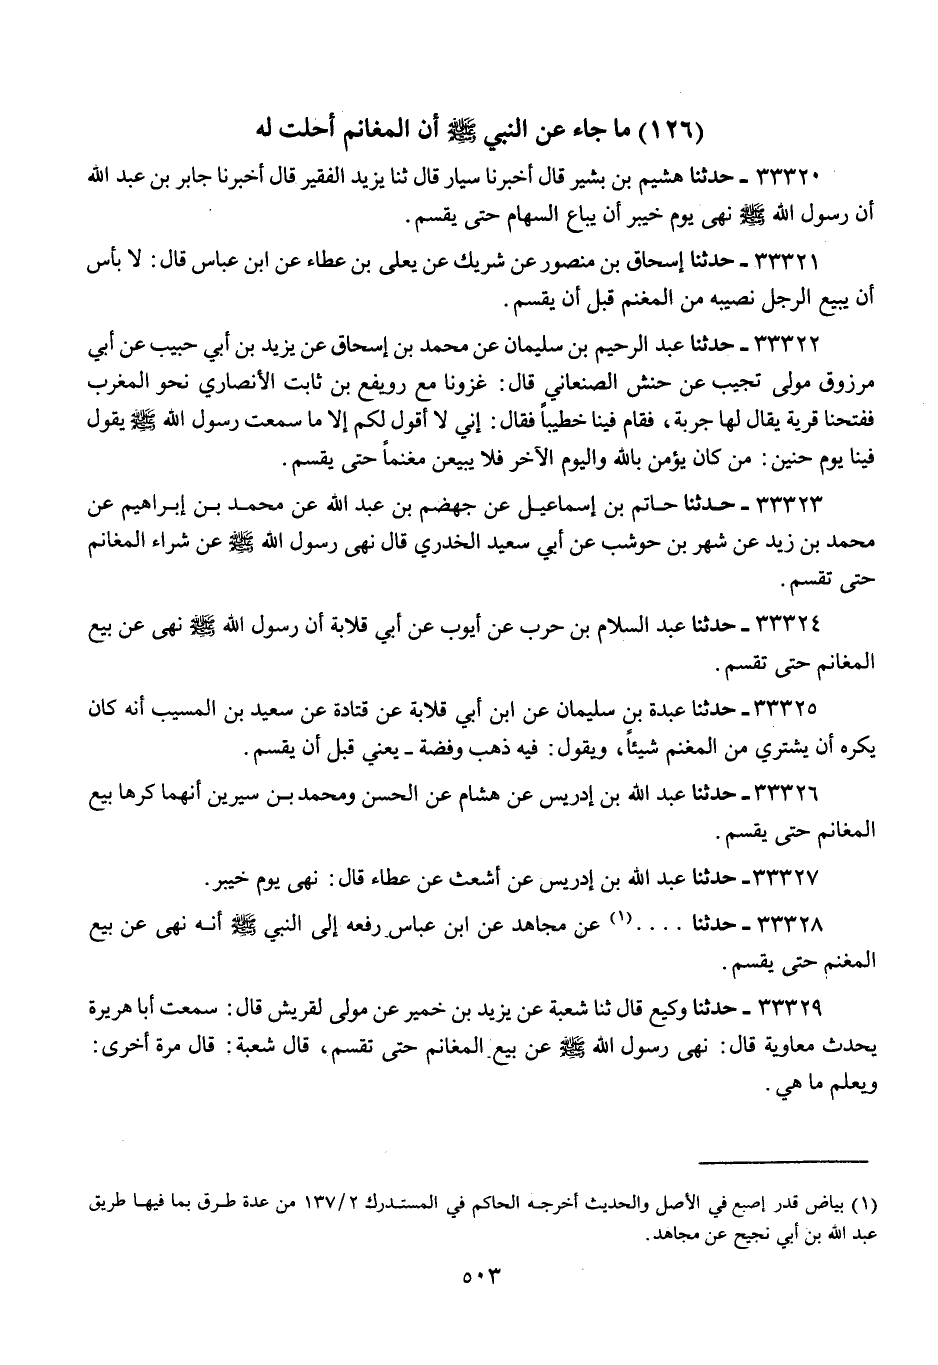 (١٢٦) ما جاء عن النبي ﷺ أن المغانم أحلت له
٣٣٣٢٠ ـ حدثنا هشيم بن بشير قال أخبرنا سيار قال ثنا يزيد الفقير قال أخبرنا جابر بن عبد الله
أن رسول الله ﷺ نهى يوم خيبر أن يباع السهام حتى يقسم.
٣٣٣٢١ ـ حدثنا إسحاق بن منصور عن شريك عن يعلى بن عطاء عن ابن عباس قال: لا بأس
أن يبيع الرجل نصيبه من المغنم قبل أن يقسم.
٣٣٣٢٢ ـ حدثنا عبد الرحيم بن سليمان عن محمد بن إسحاق عن يزيد بن أبي حبيب عن أبي
مرزوق مولى تجيب عن حنش الصنعاني قال: غزونا مع رويفع بن ثابت الأنصاري نحو المغرب
ففتحنا قرية يقال لها جربة، فقام فينا خطيباً فقال: إني لا أقول لكم إلا ما سمعت رسول الله ﷺ يقول
فينا يوم حنين: من كان يؤمن بالله واليوم الآخر فلا يبيعن مغنماً حتى يقسم.
٣٣٣٢٣ ـ حدثنا حاتم بن إسماعيل عن جهضم بن عبد الله عن محمد بن إبراهيم عن
محمد بن زيد عن شهر بن حوشب عن أبي سعيد الخدري قال نهى رسول الله ﷺ عن شراء المغانم
حتى تقسم.
٣٣٣٢٤ ـ حدثنا عبد السلام بن حرب عن أيوب عن أبي قلابة أن رسول الله ﷺ نهى عن بيع
المغانم حتى تقسم.
٣٣٣٢٥ ـ حدثنا عبدة بن سليمان عن ابن أبي قلابة عن قتادة عن سعيد بن المسيب أنه كان
يكره أن يشتري من المغنم شيئاً، ويقول: فيه ذهب وفضة ـ يعني قبل أن يقسم.
٣٣٣٢٦ ـ حدثنا عبد الله بن إدريس عن هشام عن الحسن ومحمد بن سيرين أنهما كرها بيع
المغانم حتى يقسم.
٣٣٣٢٧ ـ حدثنا عبد الله بن إدريس عن أشعث عن عطاء قال: نهى يوم خيبر.
٣٣٣٢٨ ـ حدثنا ....(١) عن مجاهد عن ابن عباس رفعه إلى النبي ﷺ أنه نهى عن بيع
المغنم حتى يقسم.
٣٣٣٢٩ ـ حدثنا وكيع قال ثنا شعبة عن يزيد بن خمير عن مولى لقريش قال: سمعت أبا هريرة
يحدث معاوية قال: نهى رسول الله ﷺ عن بيع المغانم حتى تقسم، قال شعبة: قال مرة أخرى:
ويعلم ما هي.
(١) بياض قدر إصبع في الأصل والحديث أخرجه الحاكم في المستدرك ١٣٧/٢ من عدة طرق بما فيها طريق
عبد الله بن أبي نجيح عن مجاهد.
٥٠٣